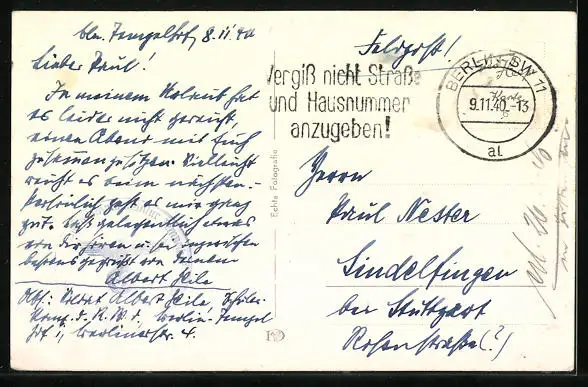 Bln. Tempelhof, 8.11.40
Lieber Paul!
In meinem Urlaub hat
es leider nicht gereicht,
einen Abend mit Euch
zusammenzusitzen. Vielleicht
reicht es beim nächsten.-
Persönlich geht es mir ganz
gut. Laß gelegentlich etwas
von Dir hören u. sei inzwischen
bestens gegrüßt von Deinem
Albert Heile
Abs: Albert Heile
Komp. d. R. W. d. Berlin-Tempel
hof 1, Berlinerstr. 4.
Feldpost!
Vergiß nicht Straße
und Hausnummer
anzugeben!
BERLIN SW 11
9.11.40.-13
al
Echte Fotografie
Herrn
Paul Nester
Sindelfingen
bei Stuttgart
Rosenstraße(?)